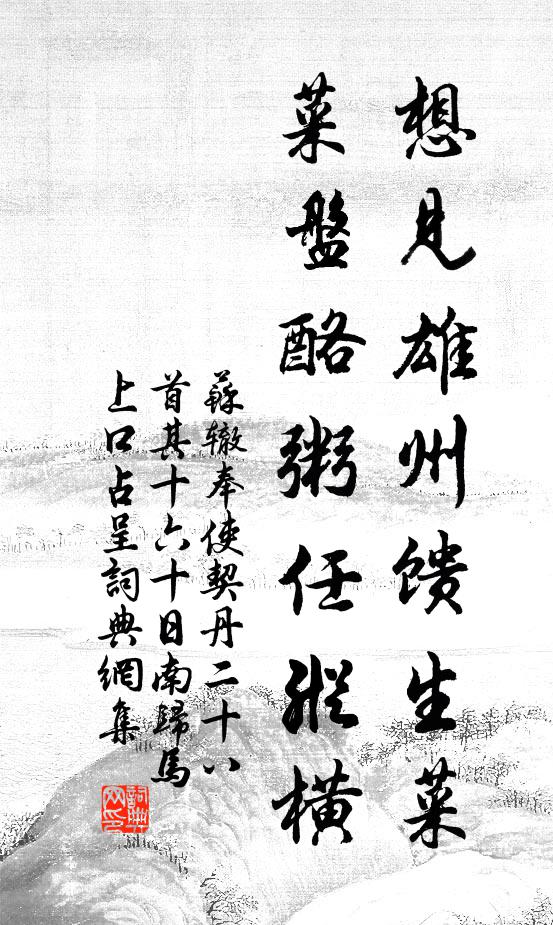 想見雄州馈生菜
菜盤酪粥任縱橫
蘇辙奉使契丹二十八
首其十六十日南歸馬
上口占呈詞典網集